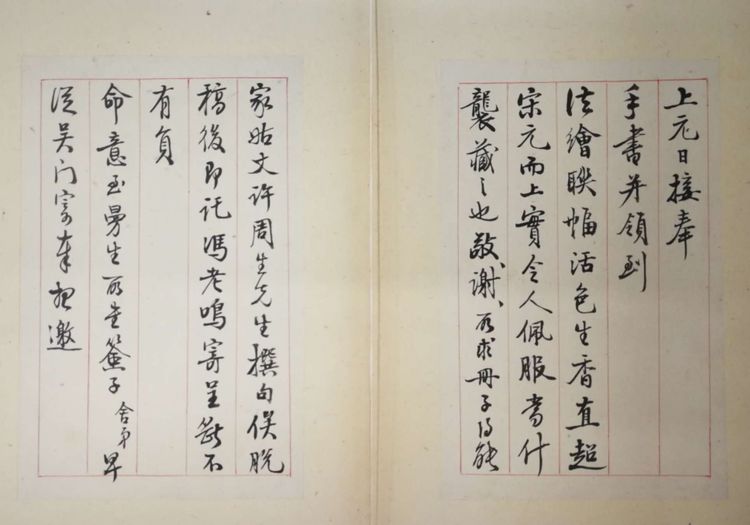 上元日接奉
手書并領到
法繪聯幅活色生香直超
宋元而上實令人佩服當什
襲藏之也敬謝敬謝所求冊子得能
家姑丈許周生先生撰句俟脫
稿後即託馮老鳴寄呈斷不
有負
命意至曼生所書簽子舍弟早
從吳門寄奉想邀